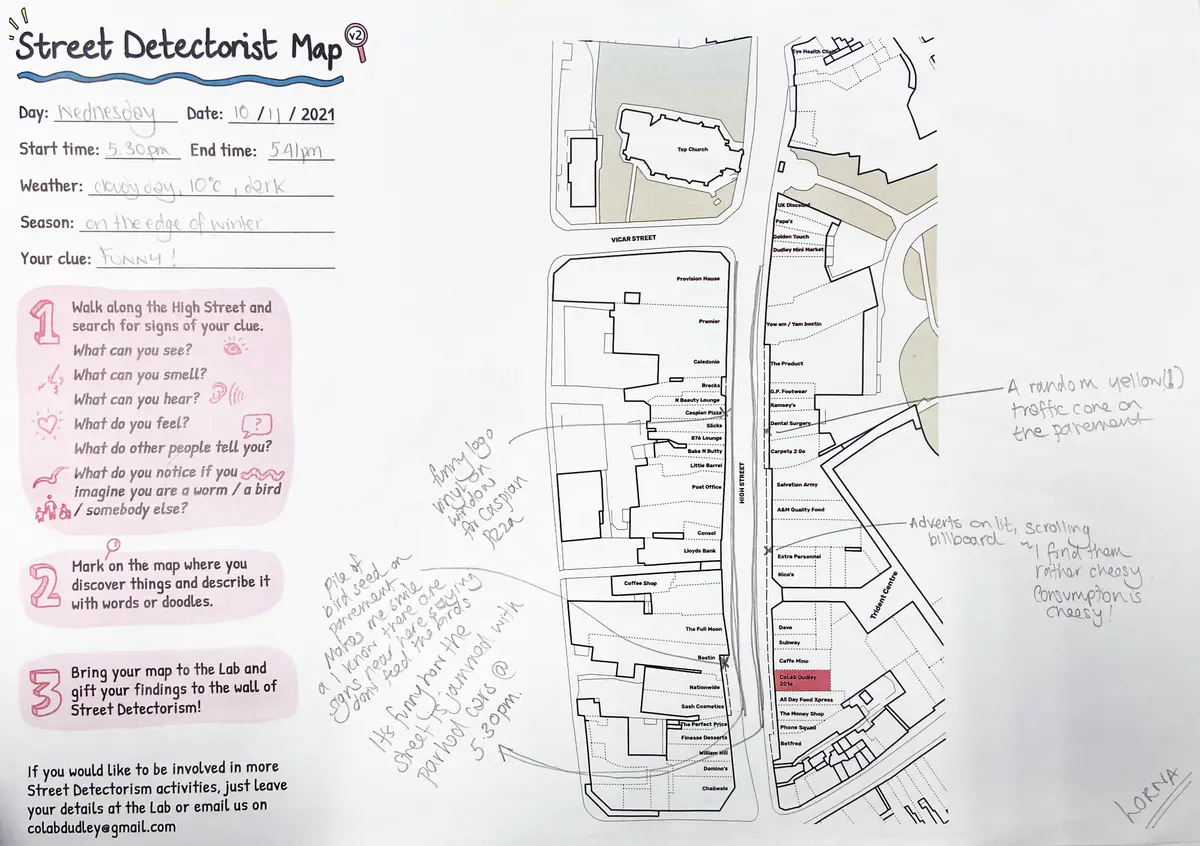 Street Detectorist Map v2
Day: Wednesday Date: 10 / 11 / 2021
Start time: 5.30pm End time: 5.41pm
Weather: cloudy day, 10°c, dark
Season: on the edge of winter
Your clue: FUNNY!
1
Walk along the High Street and
search for signs of your clue.
What can you see?
What can you smell?
What can you hear?
What do you feel?
?
What do other people tell you?
What do you notice if you
imagine you are a worm / a bird
/ somebody else?
2
Mark on the map where you
discover things and describe it
with words or doodles.
3
Bring your map to the Lab and
gift your findings to the wall of
Street Detectorism!
If you would like to be involved in more
Street Detectorism activities, just leave
your details at the Lab or email us on
colabdudley@gmail.com
Eye Health Clinic
Top Church
VICAR STREET
HIGH STREET
Provision House
Premier
Caledonia
Brecks
N Beauty Lounge
Caspian Pizza
Slicks
876 Lounge
Bake N Butty
Little Barrel
Post Office
Consol
Lloyds Bank
Coffee Shop
The Full Moon
Bostin
Nationwide
Sash Cosmetics
The Perfect Price
Finesse Desserts
William Hill
Domino's
Chaiiwala
UK Discount
Papa's
Golden Touch
Dudley Mini Market
Yow am / Yam bostin
The Product
G.P. Footwear
Ramsey's
Dental Surgery
Carpets 2 Go
Salvation Army
A&M Quality Food
Extra Personnel
Nico's
Trident Centre
Dave
Subway
Caffe Mino
CoLab Dudley
201a
All Day Food Xpress
The Money Shop
Phone Squad
Betfred
funny logo
vinyl on
window
for Caspian
Pizza
Pile of
bird seed on
pavement.
Makes me smile
as I know there are
signs near here saying
don't feed the birds
It's funny how the
street is jammed with
parked cars @
5.30pm.
A random yellow(!)
traffic cone on
the pavement
Adverts on lit, scrolling
billboard
~ I find them
rather cheesy.
Consumption is
cheesy!
LORNA